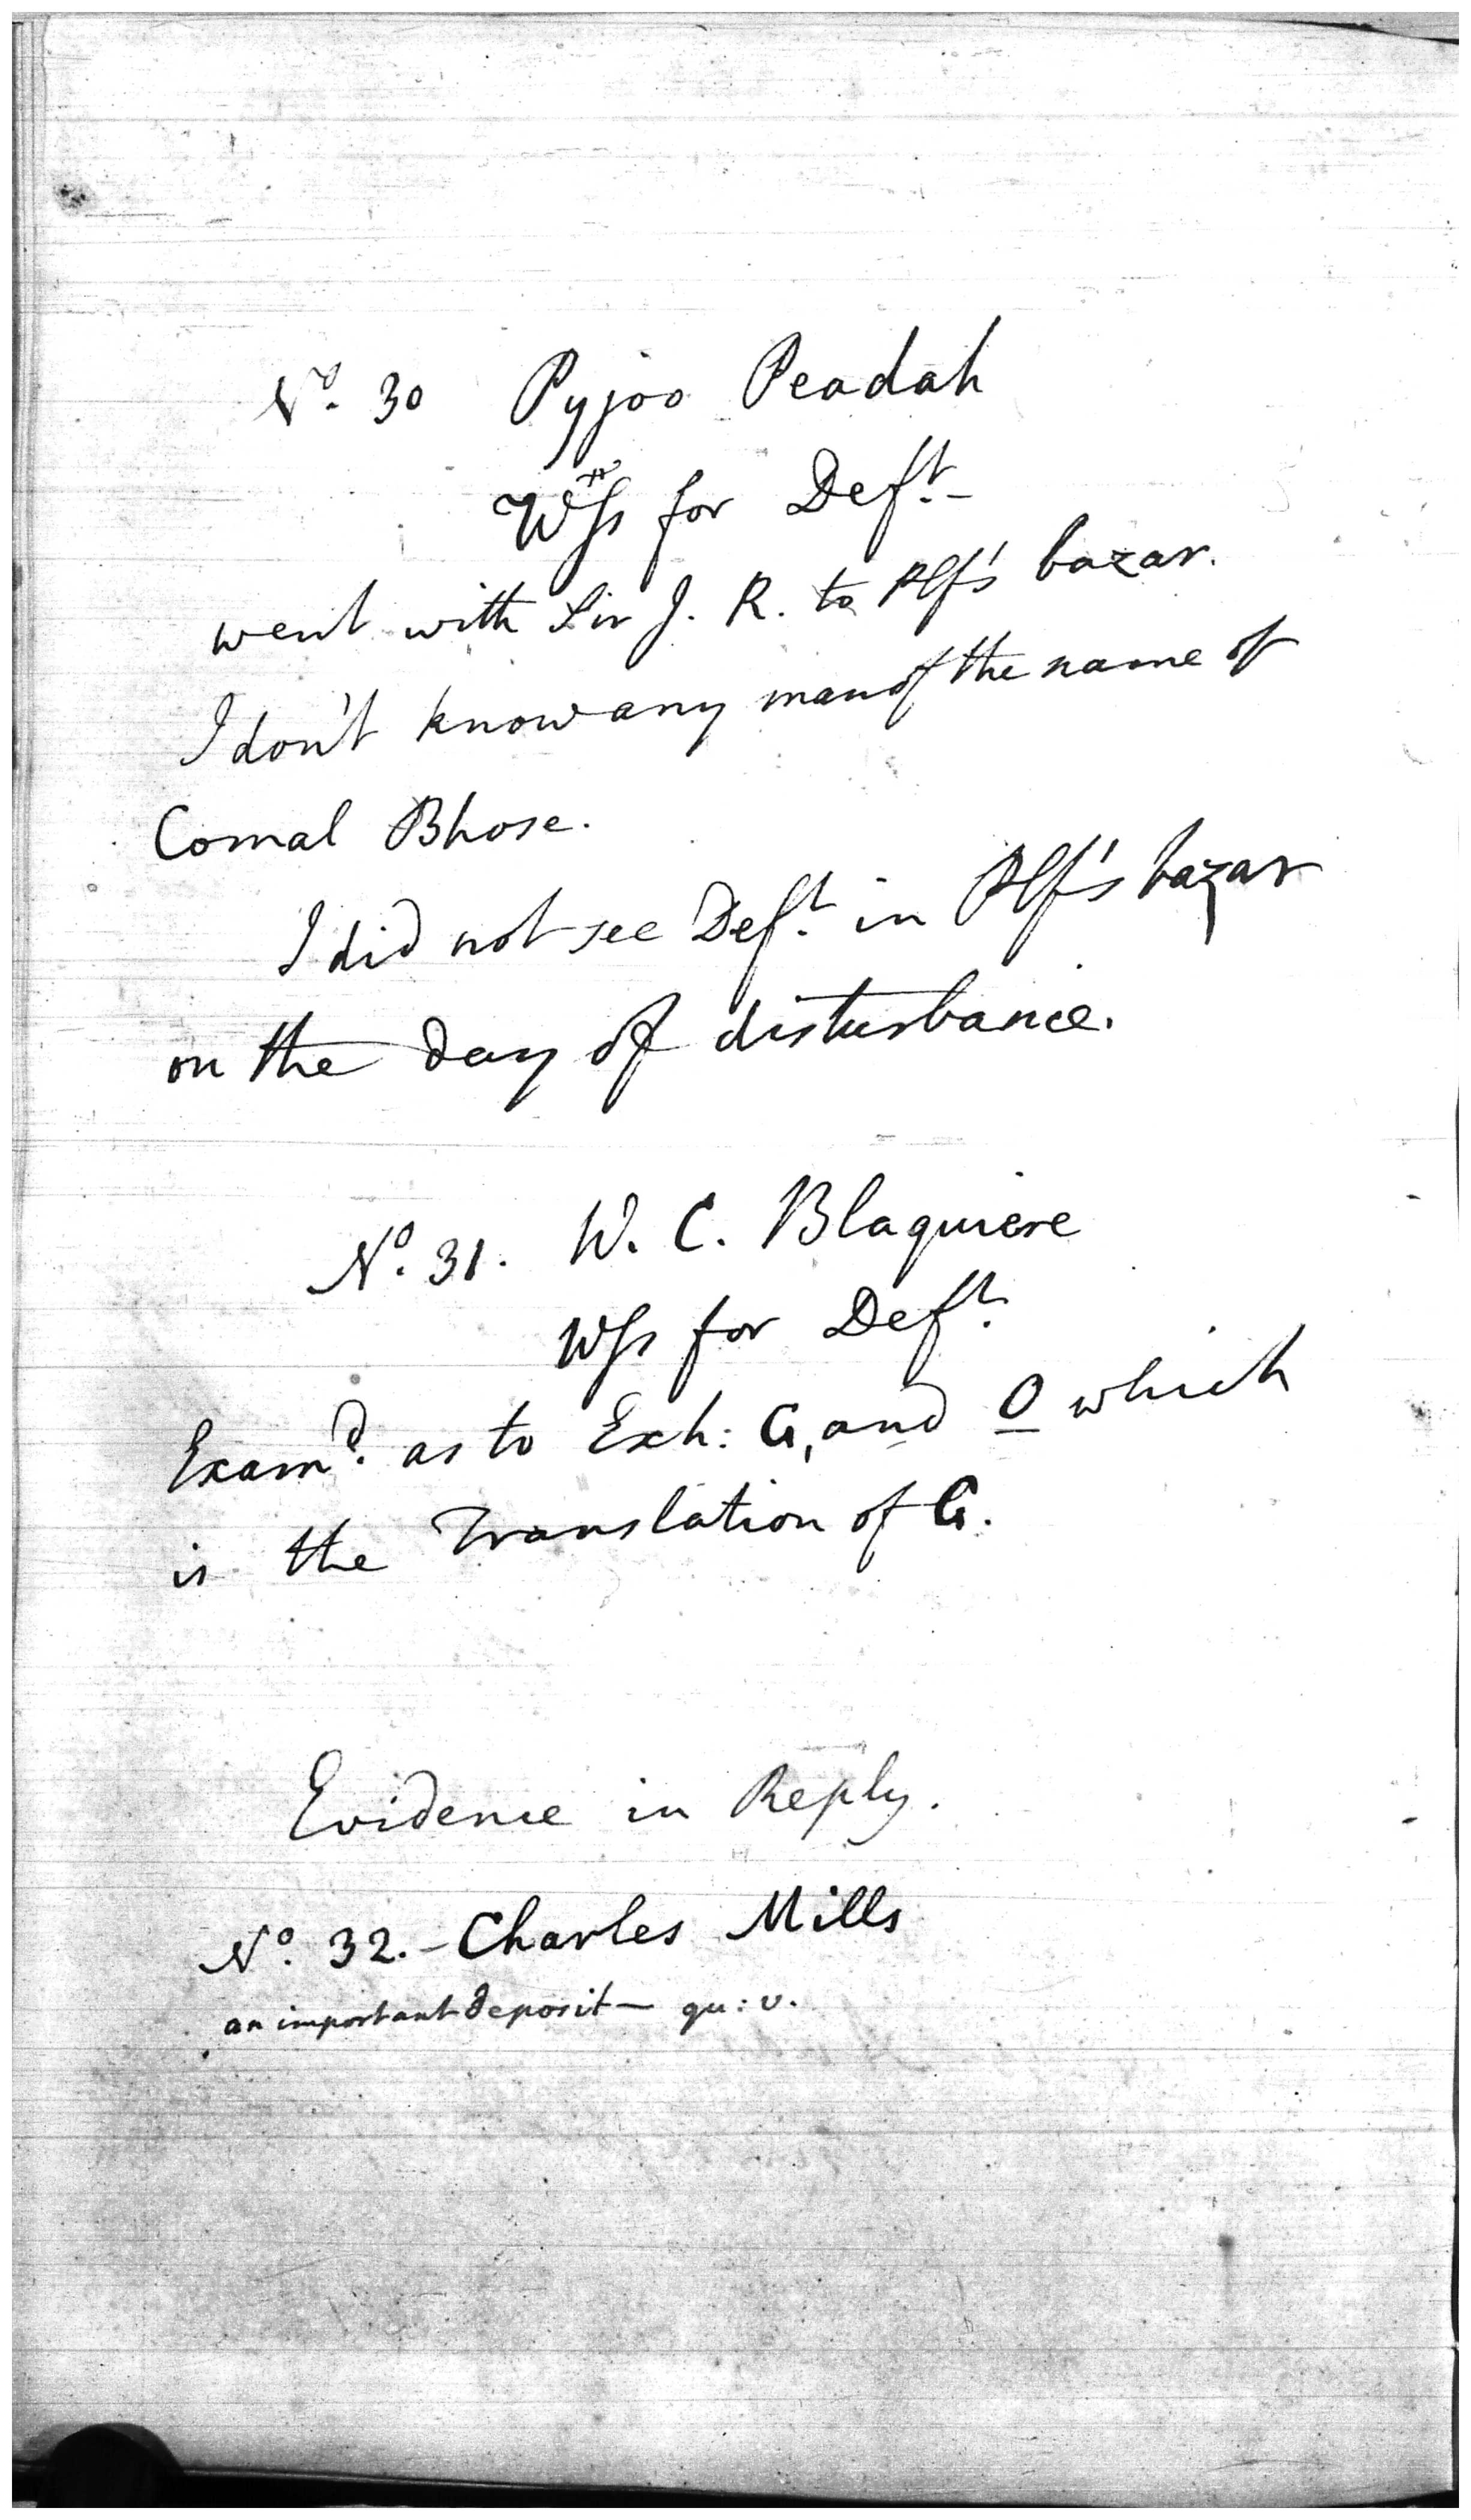 No. 30 Pyjoo Peadah
Wss for Deft.-
went with Sir J. R. to Plf's bazar.
I don't know any man of the name of
Comal Bhose.
I did not see Deft. in Plf's bazar
on the day of disturbance.
No. 31. W. C. Blaquiere
Wss for Deft.
Examd. as to Exh: G, and O which
is the Translation of G.
Evidence in Reply.
No. 32.- Charles Mills
an important deposit— qu: v.